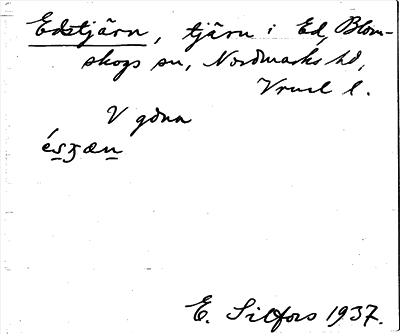 Edstjärn, tjärn i Ed, Blom-
skogs sn, Nordmarks hd,
Vrml l.
V gdna
és̲ʒæn̲
E. Silfors 1937.